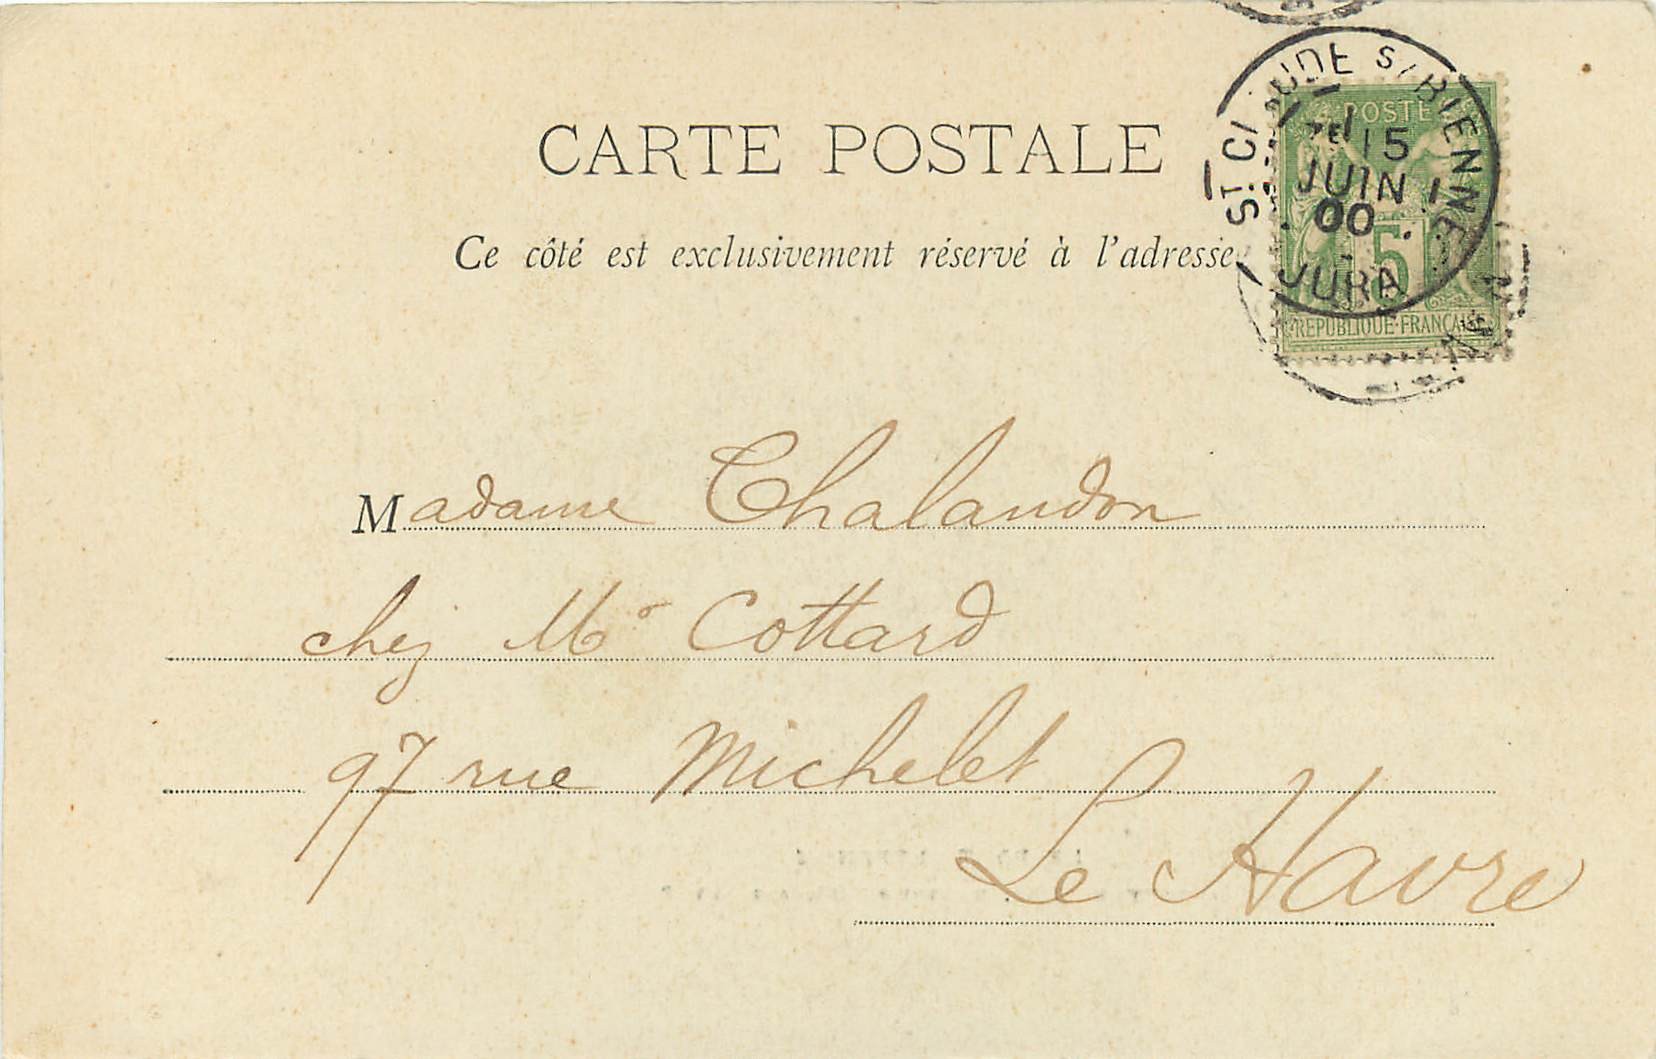 CARTE POSTALE
Ce côté est exclusivement réservé à l'adresse
ST CLAUDE S/ BIENNE
15
JUIN
00
JURA
POSTE
5
REPUBLIQUE FRANÇAISE
Madame Chalandon
chez Mr Cottard
97 rue Michelet
Le Havre